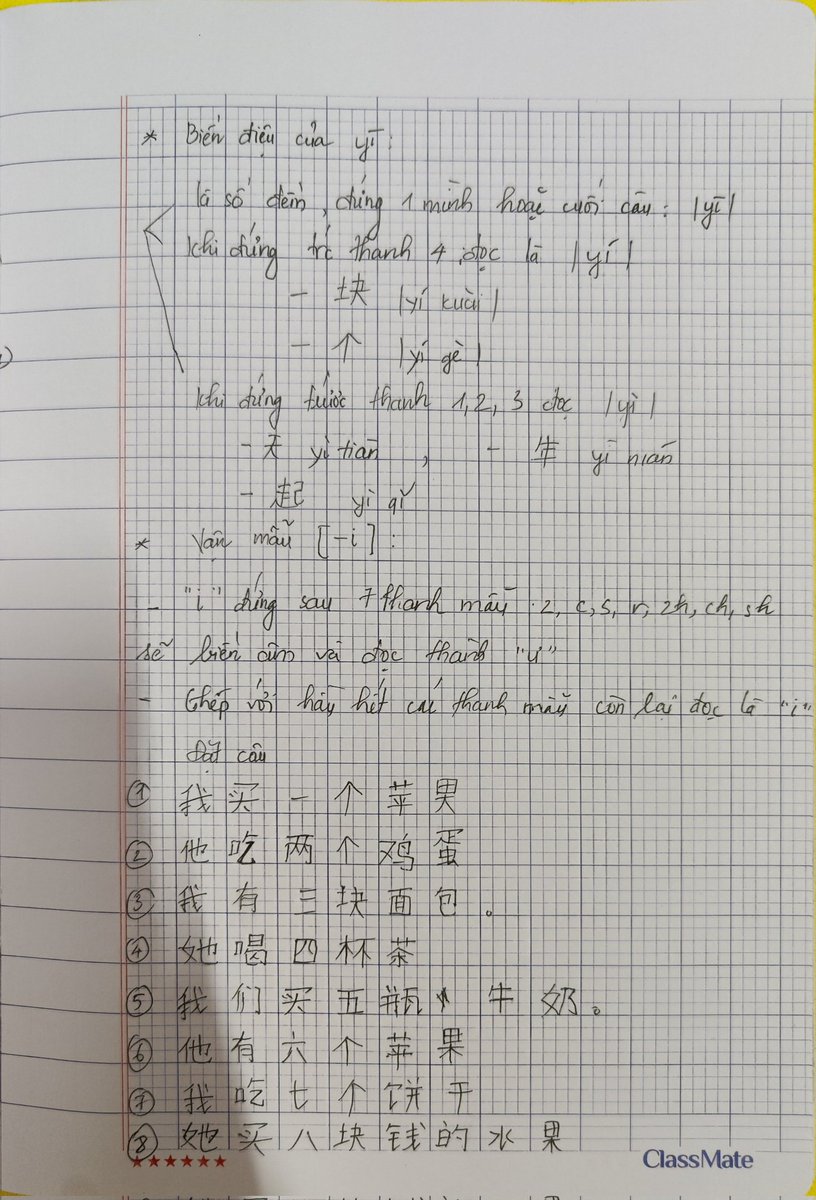 * Biến điệu của yī:
là số đếm, đứng 1 mình hoặc cuối câu: |yī|
khi đứng trc thanh 4 đọc là |yí|
一 块 |yí kuài|
一 个 |yí gè|
khi đứng trước thanh 1, 2, 3 đọc |yì|
一天 yì tiān , 一 年 yì nián
一 起 yì qǐ
* Vận mẫu [-i]:
- "i" đứng sau 7 thanh mẫu: z, c, s, r, zh, ch, sh
sẽ biến âm và đọc thành "ư"
- Ghép với hầu hết các thanh mẫu còn lại đọc là "i"
Đặt câu
① 我买一个苹果
② 他吃两个鸡蛋
③ 我有三块面包。
④ 她喝四杯茶
⑤ 我们买五瓶牛奶。
⑥ 他有六个苹果
⑦ 我吃七个饼干
⑧ 她买八块钱的水果
ClassMate